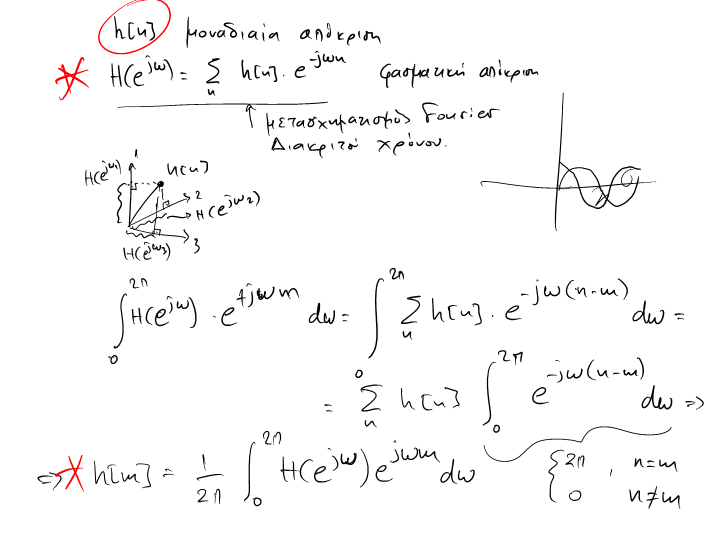 h[n] μοναδιαία απόκριση
H(e^{jω}) = Σ_n h[n] · e^{-jωn} φασματική απόκριση
↑ μετασχηματισμός Fourier
Διακριτού χρόνου.
H(e^{jω1}) 1 h[n]
2
→ H(e^{jω2})
H(e^{jω3}) 3
∫_0^{2π} H(e^{jω}) · e^{+jωm} dω = ∫_0^{2π} Σ_n h[n] · e^{-jω(n-m)} dω =
= Σ_n h[n] ∫_0^{2π} e^{-jω(n-m)} dω ⇒
⇒ h[m] = 1/2π ∫_0^{2π} H(e^{jω}) e^{jωm} dω { 2π , n=m
0 n≠m